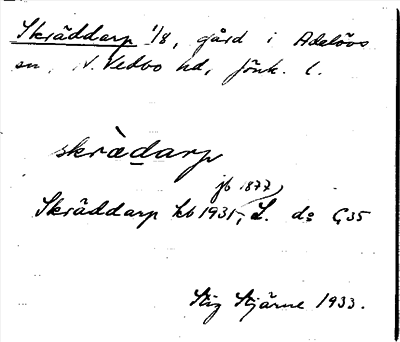 Skräddarp 1/8, gård i Adelövs
sn, N. Vedbo hd, Jönk. l.
skrædarp
jb 1877,
Skräddarp kb 1931-, L. do G35
Stig Stjärne 1933.